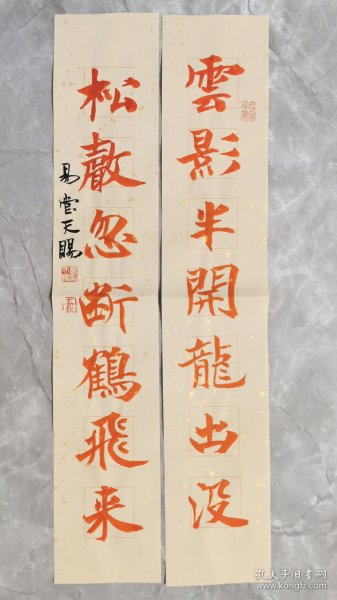 雲影半開龍出没
松聲忽斷鶴飛来
易堂天賜
孔夫子旧书网